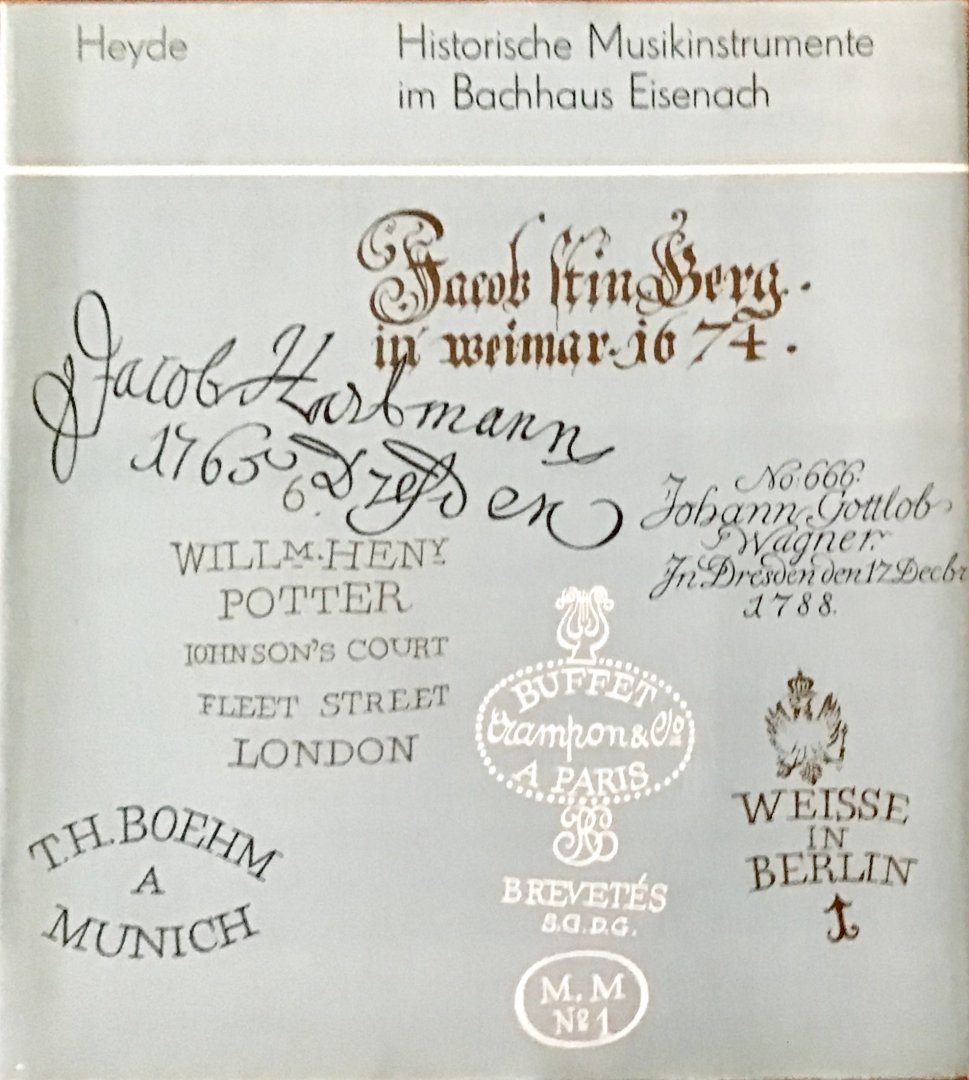 Heyde
Historische Musikinstrumente
im Bachhaus Eisenach
Jacob stin Berg.
in weimar. 1674.
Jacob Hartmann
1765 Dresden
6.
No: 666.
Johann Gottlob
Wagner.
In Dresden den 17 Decbr
1788.
WILLM. HENY
POTTER
JOHNSON'S COURT
FLEET STREET
LONDON
BUFFET
Crampon & Co
A PARIS
BREVETÉS
S.G.D.G.
M. M
No 1
WEISSE
IN
BERLIN
T.H. BOEHM
A
MUNICH